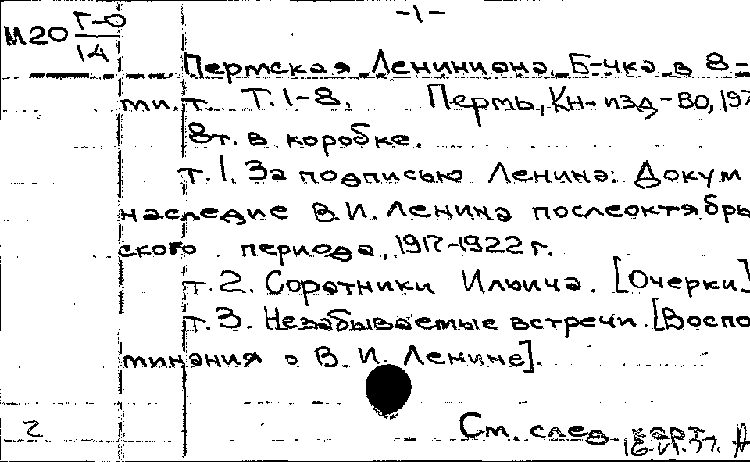 -1-
М20 Г-0
14
Пермская Лениниана. Б-чка в 8-
ми.т. Т.1-8. Пермь, Кн-изд-во, 197
8т. в коробке.
т.1. За подписью Ленина: Докум
наследие В.И. Ленина послеоктябрь
ского периода, 1917-1922 г.
т.2. Соратники Ильича. [Очерки]
т.3. Незабываемые встречи. [Воспо
минания о В.И. Ленине].
2 См. след. карт.